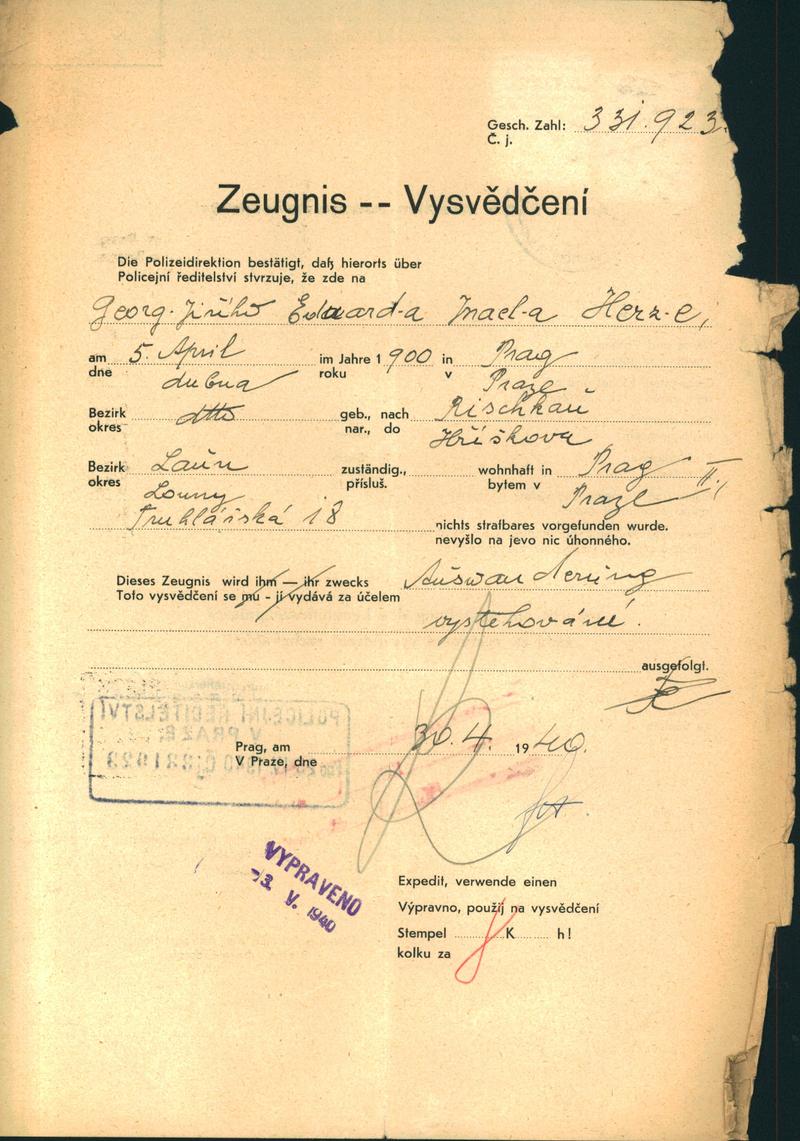 Gesch. Zahl: 331.923.
Č. j.
Zeugnis -- Vysvědčení
Die Polizeidirektion bestätigt, daß hierorts über
Policejní ředitelství stvrzuje, že zde na
Georg-Jiřího Eduard-a Israel-a Herz-e,
am 5. April im Jahre 1900 in Prag
dne dubna roku v Praze
Bezirk dtto geb., nach Rischkau
okres nar., do Hříškova
Bezirk Laun zuständig., wohnhaft in Prag II.,
okres Louny přísluš. bytem v Praze
Truhlářská 18 nichts strafbares vorgefunden wurde.
nevyšlo na jevo nic úhonného.
Dieses Zeugnis wird ihm — ihr zwecks Auswanderung
Toto vysvědčení se mu - jí vydává za účelem
vystěhování.
ausgefolgt.
POLICEJNÍ ŘEDITELSTVÍ
V PRAZE
Prag, am 30.4. 1940.
V Praze, dne
VYPRAVENO
-3. V. 1940
Expedit, verwende einen
Výpravno, použij na vysvědčení
Stempel 8 K h!
kolku za